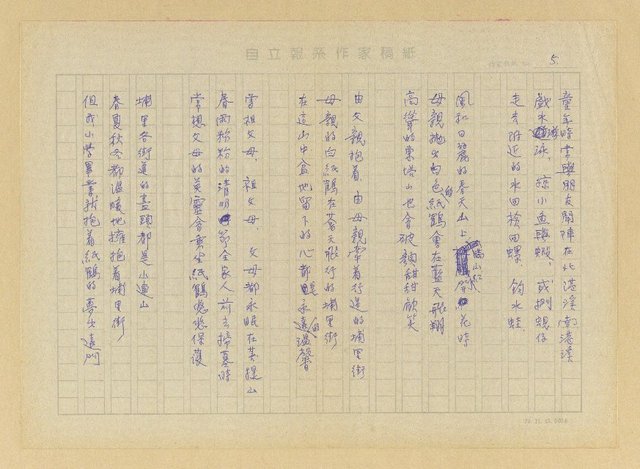 自立報系作家稿紙
5.
童年時常與朋友開陣在北港溪南港溪
戲水游泳，捉小魚與蝦，或捌鴟仔
走去附近的水田撿田螺、釣水蛙
風和日麗的春天山上滿山紅花時
母親拋出白色的紙鶴會在藍天飛翔
高聳的東埔山也會破顏甜甜欣笑
由父親抱着，由母親牽着行過的埔里街
母親的白紙鶴在蒼天飛行的埔里街
在這山中盆地留下的心都是永遠的溫馨
常想父母、祖父母、父母都永眠在其提山
春雨粉粉的清明節全家人前去掃墓時
常想父母的英靈會乘坐紙鶴暖暖保護
埔里冬街道的盡頭都是山連山
春夏秋冬都溫暖地擁抱着埔里街
但我小學畢業就抱着紙鶴的夢出遠門